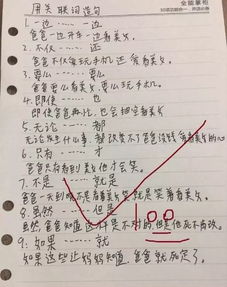 全能掌柜
用关联词造句
1. 一边……一边
爸爸一边开车一边看美女。
2. 不仅……还
爸爸不仅爱玩手机还爱看美女。
3. 要么……要么
爸爸要么看美女,要么玩手机。
4. 即使……也
即使爸爸再忙,也会抽空看美女
5. 无论……都
无论发生什么事,都改变不了爸爸爱看美女的心
6. 只有……才
爸爸只有看到美女他才会笑。
7. 不是……就是
爸爸一天到晚不是看着美女笑就是笑着看美女。
8. 虽然……但是
虽然爸爸知道这样是不对的,但是他死不悔改。
9. 如果……就
如果这些让妈妈知道,爸爸就死定了。
100